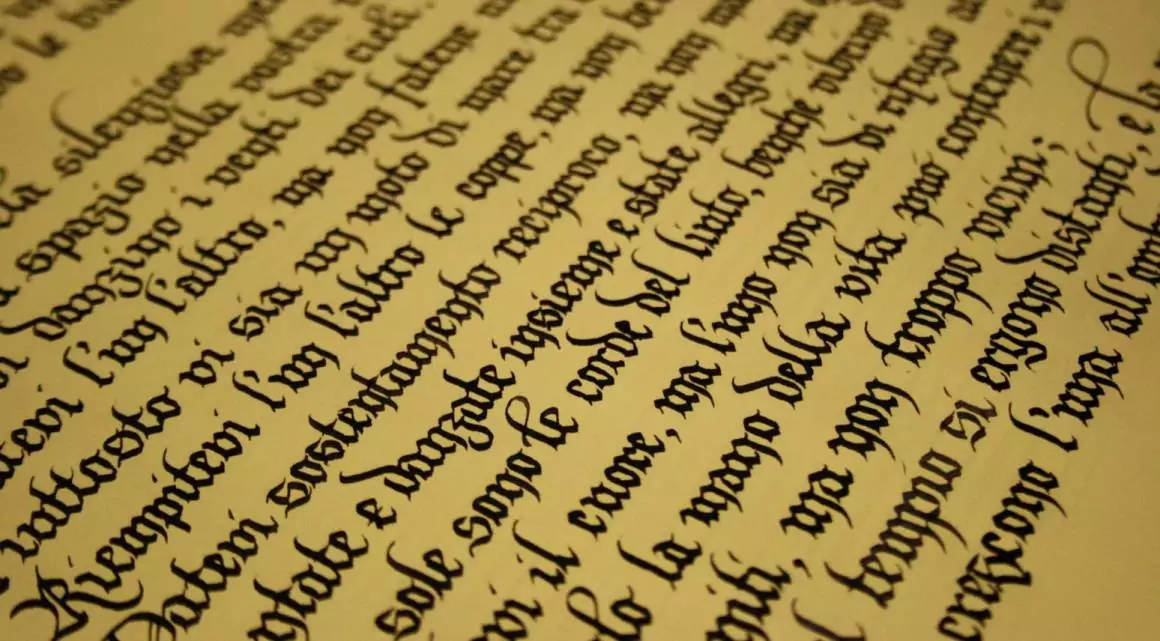 silenziosa
spazio nella vostra
danzino i venti dei cieli.
l'un l'altro, ma non fatene
piuttosto vi sia un moto di mare tra
Riempitevi l'un l'altro le coppe, ma non be
Datevi sostentamento reciproco, ma non ma
ntate e danzate insieme e state allegri, ma
sole sono le corde del liuto, benché vibrino d
vi il cuore, ma l'uno non sia di rifugio al
lo la mano della vita può contenere i v
niti, ma non troppo vicini;
l tempio si ergono distanti, e la
crescono l'una all'omb